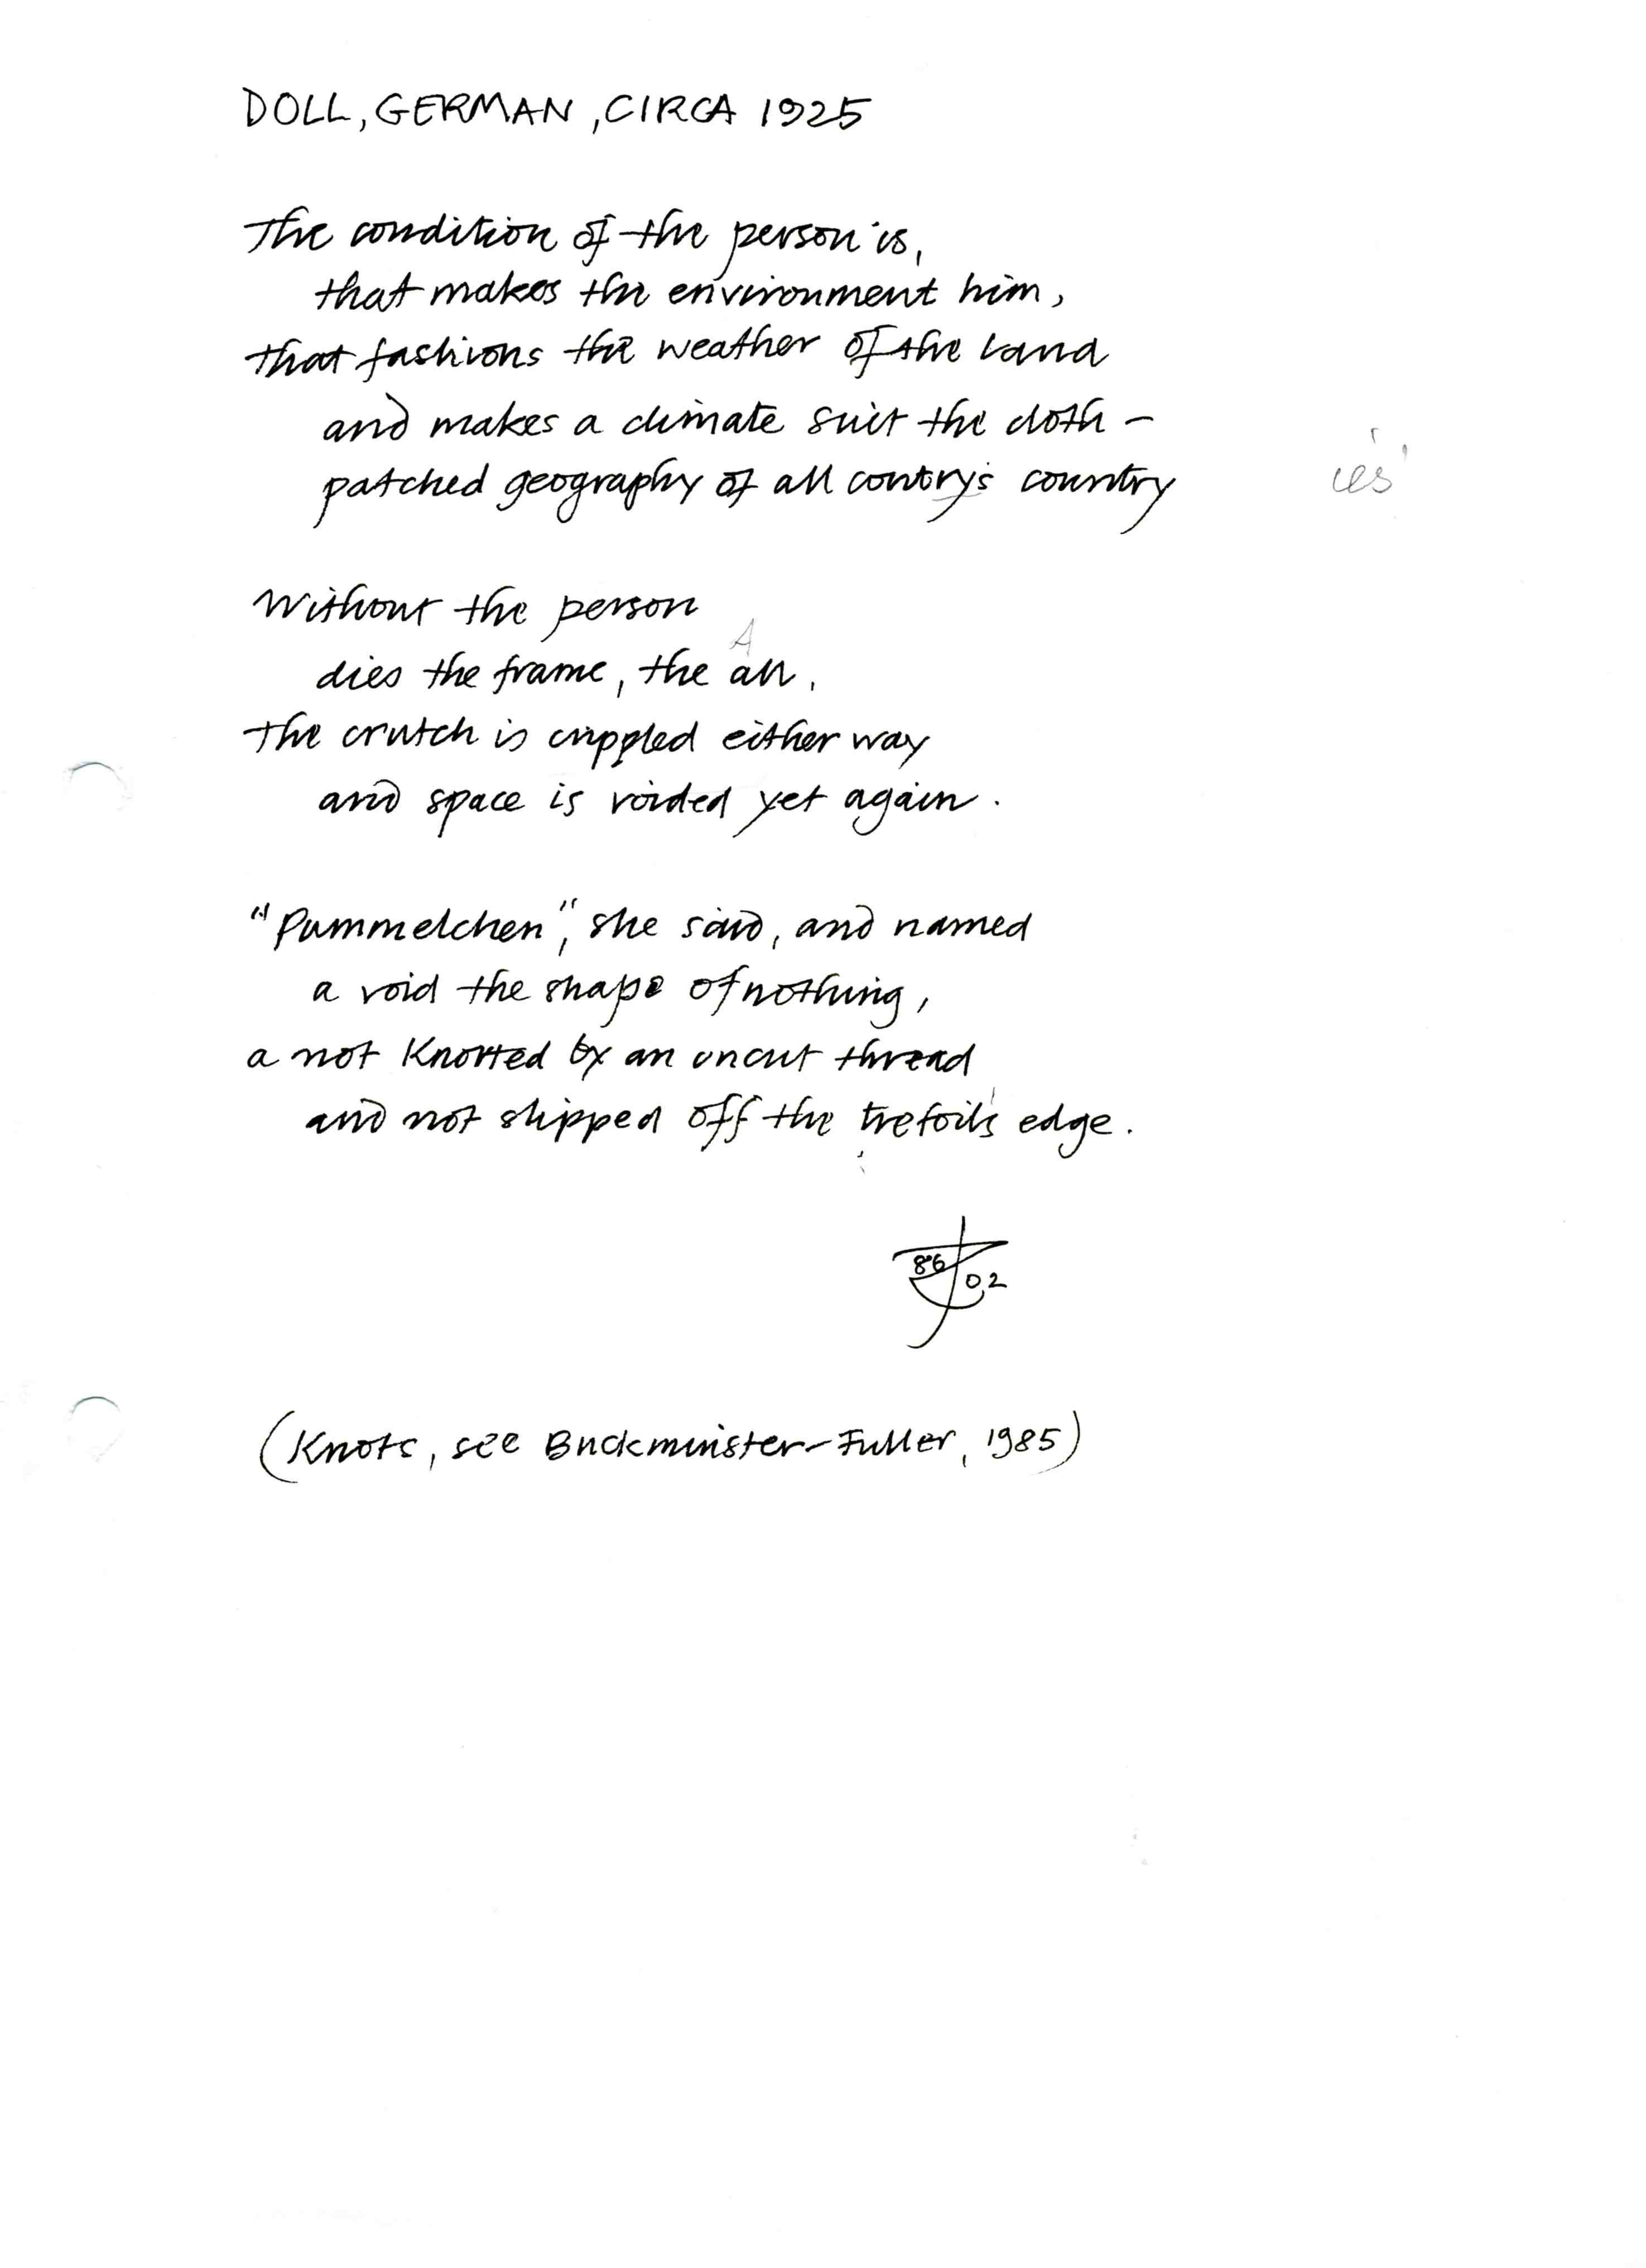 DOLL, GERMAN, CIRCA 1925
The condition of the person is,
that makes the environment him,
that fashions the weather of the land
and makes a climate suit the cloth –
patched geography of all contry's country
ies'
Without the person
A
dies the frame, the all.
The crutch is crippled either way
and space is voided yet again.
"Pummelchen", she said, and named
a void the shape of nothing,
a not knotted by an uncut thread
and not slipped off the trefoil's edge.
86 02
(Knots, see Buckminster-Fuller, 1985)